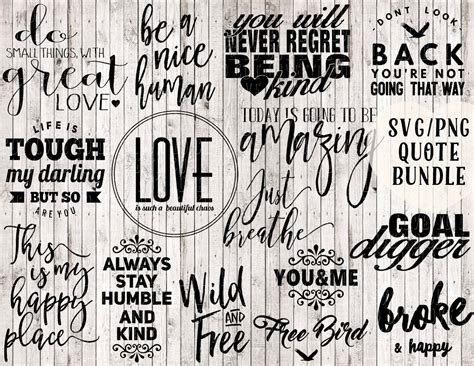 do
SMALL THINGS, WITH
great
LOVE
be a
nice
human
you will
NEVER REGRET
BEING
kind
DONT LOOK
BACK
YOU'RE NOT
GOING THAT WAY
LIFE IS
TOUGH
my darling
BUT SO
ARE YOU
LOVE
is such a beautiful chaos
TODAY IS GOING TO BE
amazing
SVG/PNG
QUOTE
BUNDLE
This is
my
happy
place
ALWAYS
STAY
HUMBLE
AND
KIND
Just
breathe
Wild
AND
Free
YOU&ME
Free Bird
GOAL
digger
broke
& happy